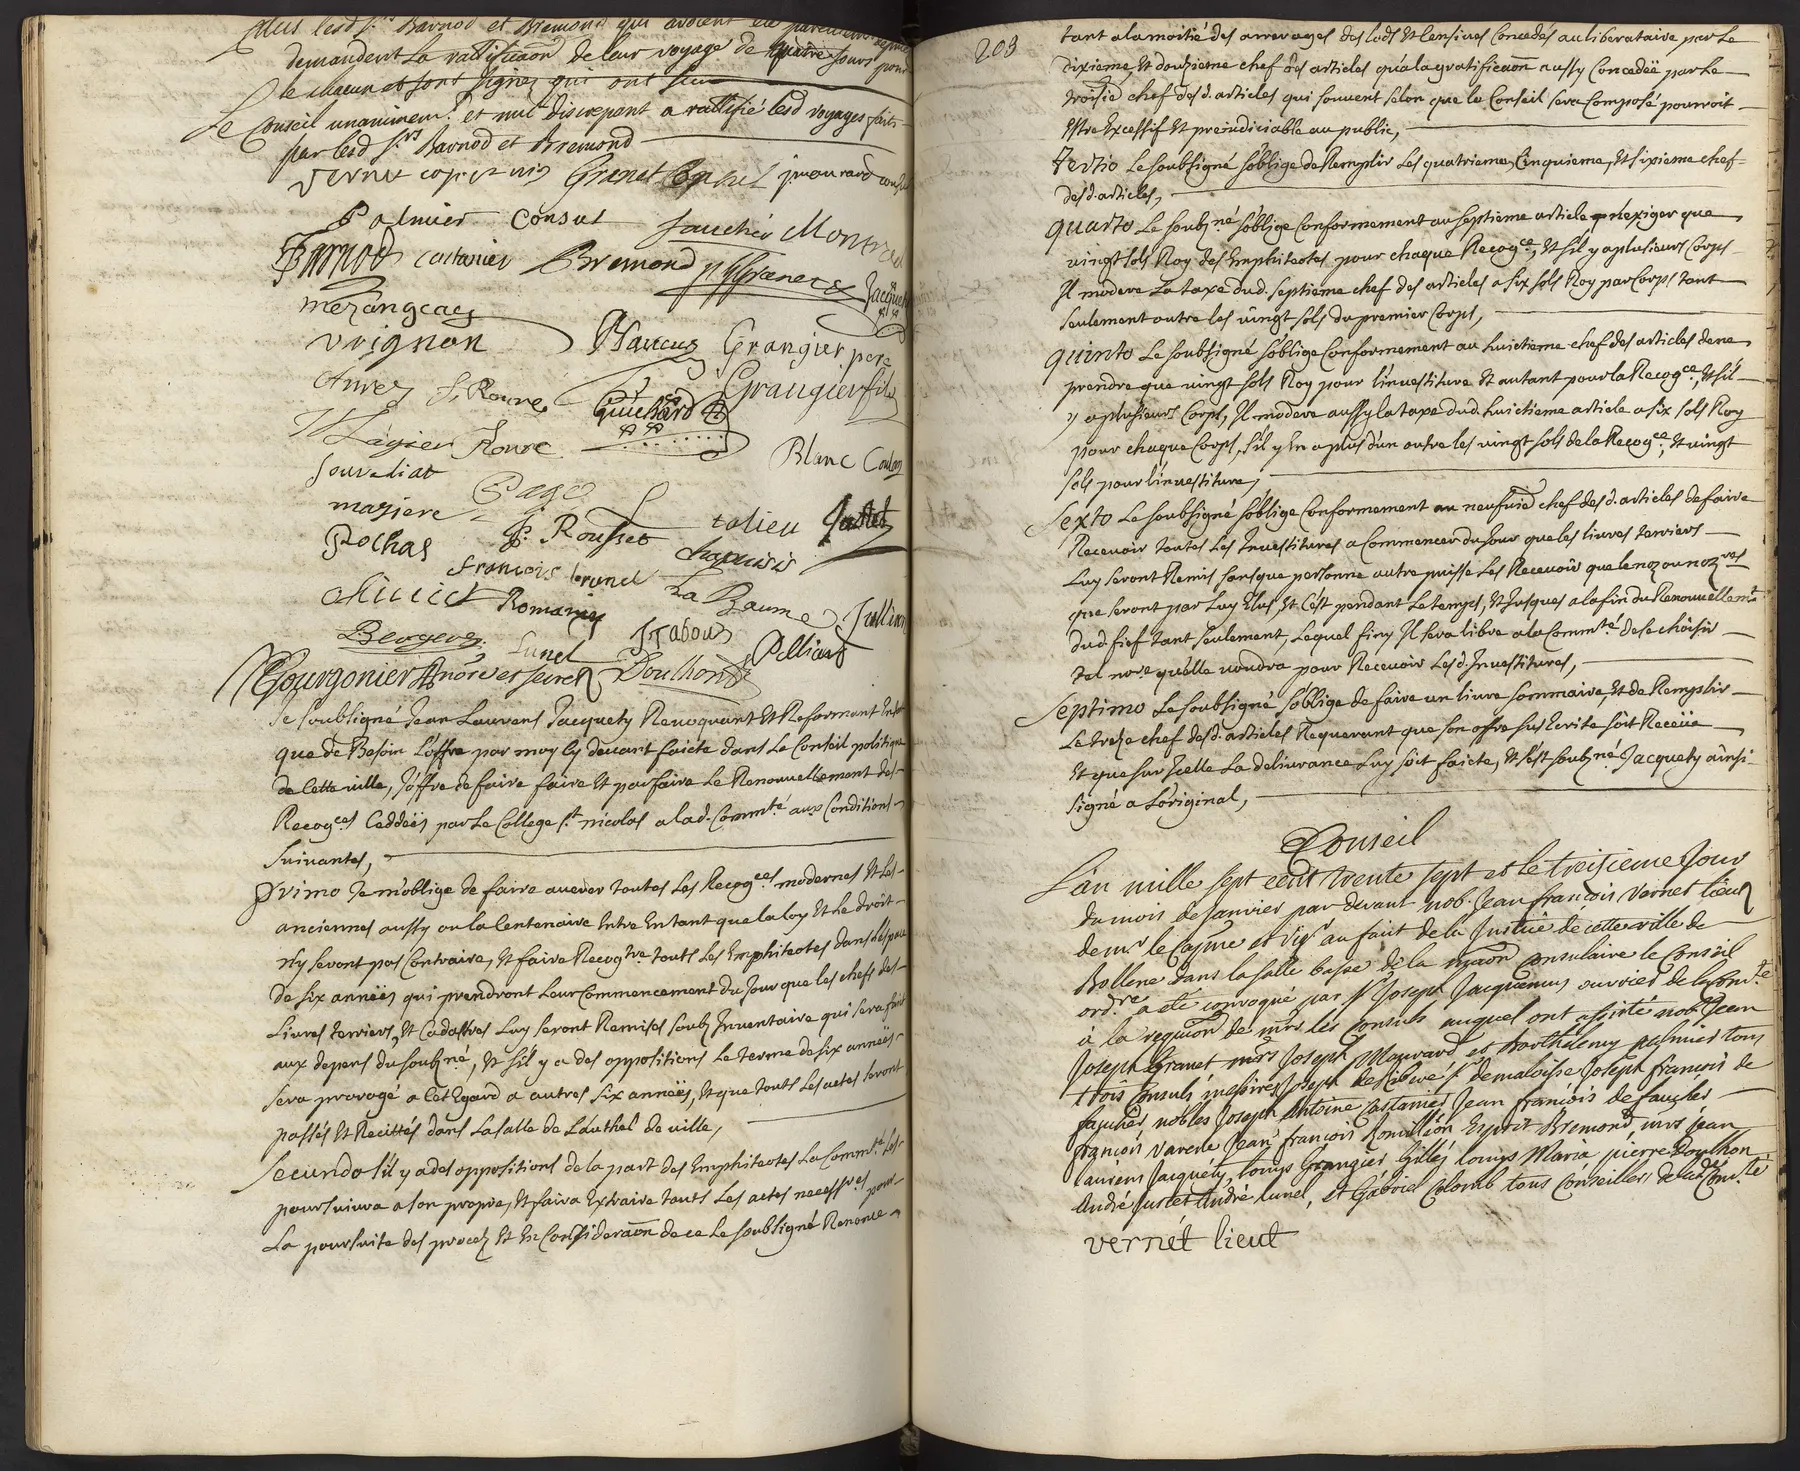 plus lesd s.rs Barnod et Bremond qui avoient
demandent La rattificaõn de leur voyage de quatre jours pour
le chacun et sont signez qui ont sceu
Le Conseil unanimem.t et nul discrepant a rattifié lesd voyages faits
par lesd s.rs Barnod et Bremond
Vernet Granet Consul j mourard consul
Palmier Consul faucher Montred
Barnod castanier Bremond Granet Jacquet
merangeay
vrignon Hareng Grangier pere
Anrez S. Roure Guichard Grangier fils
Legier Roure Blanc Coulon
Sourdiat
maziere Page talieu Justet
Rochas P. Rousset chapuisis
francois brunel La Baume Jullien
Romanier
Bergeron Lunel J Tabour Pelliard
Gourgonier No.re et secret. Doulhon
Je soubsigné Jean Laurens Jacquety Revoquant Et Reformant Entant
que de Besoin L'offre par moy cy devant faicte dans Le Conseil politique
de Cette ville, J'offre de faire faire Et parfaire Le Renouvellement des
Recog.ces Ceddées par Le College S.t nicolas a lad. Comm.té aux Conditions
suivantes,
Primo Je m'oblige de faire averer toutes Les Recog.ces modernes Et Les
anciennes aussy ou la Centenaire Entre Entant que la loy Et Le droit
n'y seront pas Contraire, Et faire Recog.tre touts Les Emphiteotes dans L'espace
de six années qui prendront Leur Commencement du Jour que les chefs des
Livres terriers, Et Cadastres Luy seront Remises soubz Inventaire qui sera fait
aux depens du soubz.né, Et s'il y a des oppositions Le terme de six années
sera prorogé a Cet Egard a autres six années, Et que touts Les actes seront
passés Et Recittés dans La salle de L'authel de ville,
Secundo s'il y a des oppositions de la part des Emphiteotes La Comm.té Les
poursuivra a son propre, Et faira Extraire touts Les actes necess.res pour
La poursuite des procez Et En Consideraõn de ce Le soubsigné Renonce
203
tant a la moitié des arrerages des lods Et Censives Concedés au liberataire par Le
dixieme, Et douzieme chef des articles qu'a la gratificaõn aussy Concedée par Le
troisie chef desd. articles qui souvent selon que le Conseil sera Composé pourroit
Estre Excessif Et prejudiciable au public,
Tertio Le soubsigné s'oblige de Remplir Les quatrieme, Cinquieme, Et sixieme chef
desd. articles,
Quarto Le soubz.né s'oblige Conformement au septieme article n'exiger que
vingt sols Roy des Emphiteotes pour chaque Recog.ce, Et s'il y a plusieurs Corps
Il modere La taxe dud. septieme chef des articles a six sols Roy par Corps tant
seulement outre les vingt sols du premier Corps,
Quinto Le soubsigné s'oblige Conformement au huictieme chef des articles de ne
prendre que vingt sols Roy pour l'investiture Et autant pour la Recog.ce, Et s'il
y a plusieurs Corps, Il modere aussy la taxe dud. huictieme article a six sols Roy
pour chaque Corps, s'il y En a plus d'un outre les vingt sols de la Recog.ce, Et vingt
sols pour l'investiture,
Sexto Le soubsigné s'oblige Conformement au neufvie chef desd. articles de faire
Recevoir toutes Les Investitures a Commencer du Jour que les livres terriers
Luy seront Remis sans que personne autre puisse Les Recevoir que le no.re ou no.res
que seront par Luy Elus, Et C'est pendant Le temps, Et Jusques a la fin du Renouvellem.t
dud. fief tant seulement, Lequel finy Il sera libre a la Comm.té de se choisir
tel no.re qu'elle voudra pour Recevoir Lesd. Investitures,
Septimo Le soubsigné s'oblige de faire un livre sommaire, Et de Remplir
Le treize chef desd. articles Requerant que son offre sus Ecrite soit Receüe
Et que sur Icelle La delivrance Luy soit faicte, Et s'est soubz.né. Jacquety ainsi
signé a L'original,
Conseil
L'an mille sept cent trente sept et le treisieme Jour
du mois de Janvier par devant nob. Jean françois Vernet lieut
de m.r le Capne et Vig.r au fait de la Justice de cette ville de
Bollene dans la salle basse de la maõn Consulaire le Conseil
ord.re a eté convoqué par s.r Joseph Jacquemus ouvrier de la Com.té
à la requiõn de m.rs les Consuls auquel ont assisté nob. Jean
Joseph Granet m.rs Joseph Mourard et Barthélemy palmier tous
trois Consuls m. Joseph de s.r demaloisse Joseph francois de
faucher, nobles Joseph Antoine Castanier Jean francois de faucher
francois Varene Jean francois Rouvillion Esprit Bremond, m.rs jean
Laurens Jacquety, Louys Grangier Gilles louys Maria pierre Doulhon
André Justet André lunel, et Gabriel Colomb tous Conseillers de lad. Com.té
vernet lieut